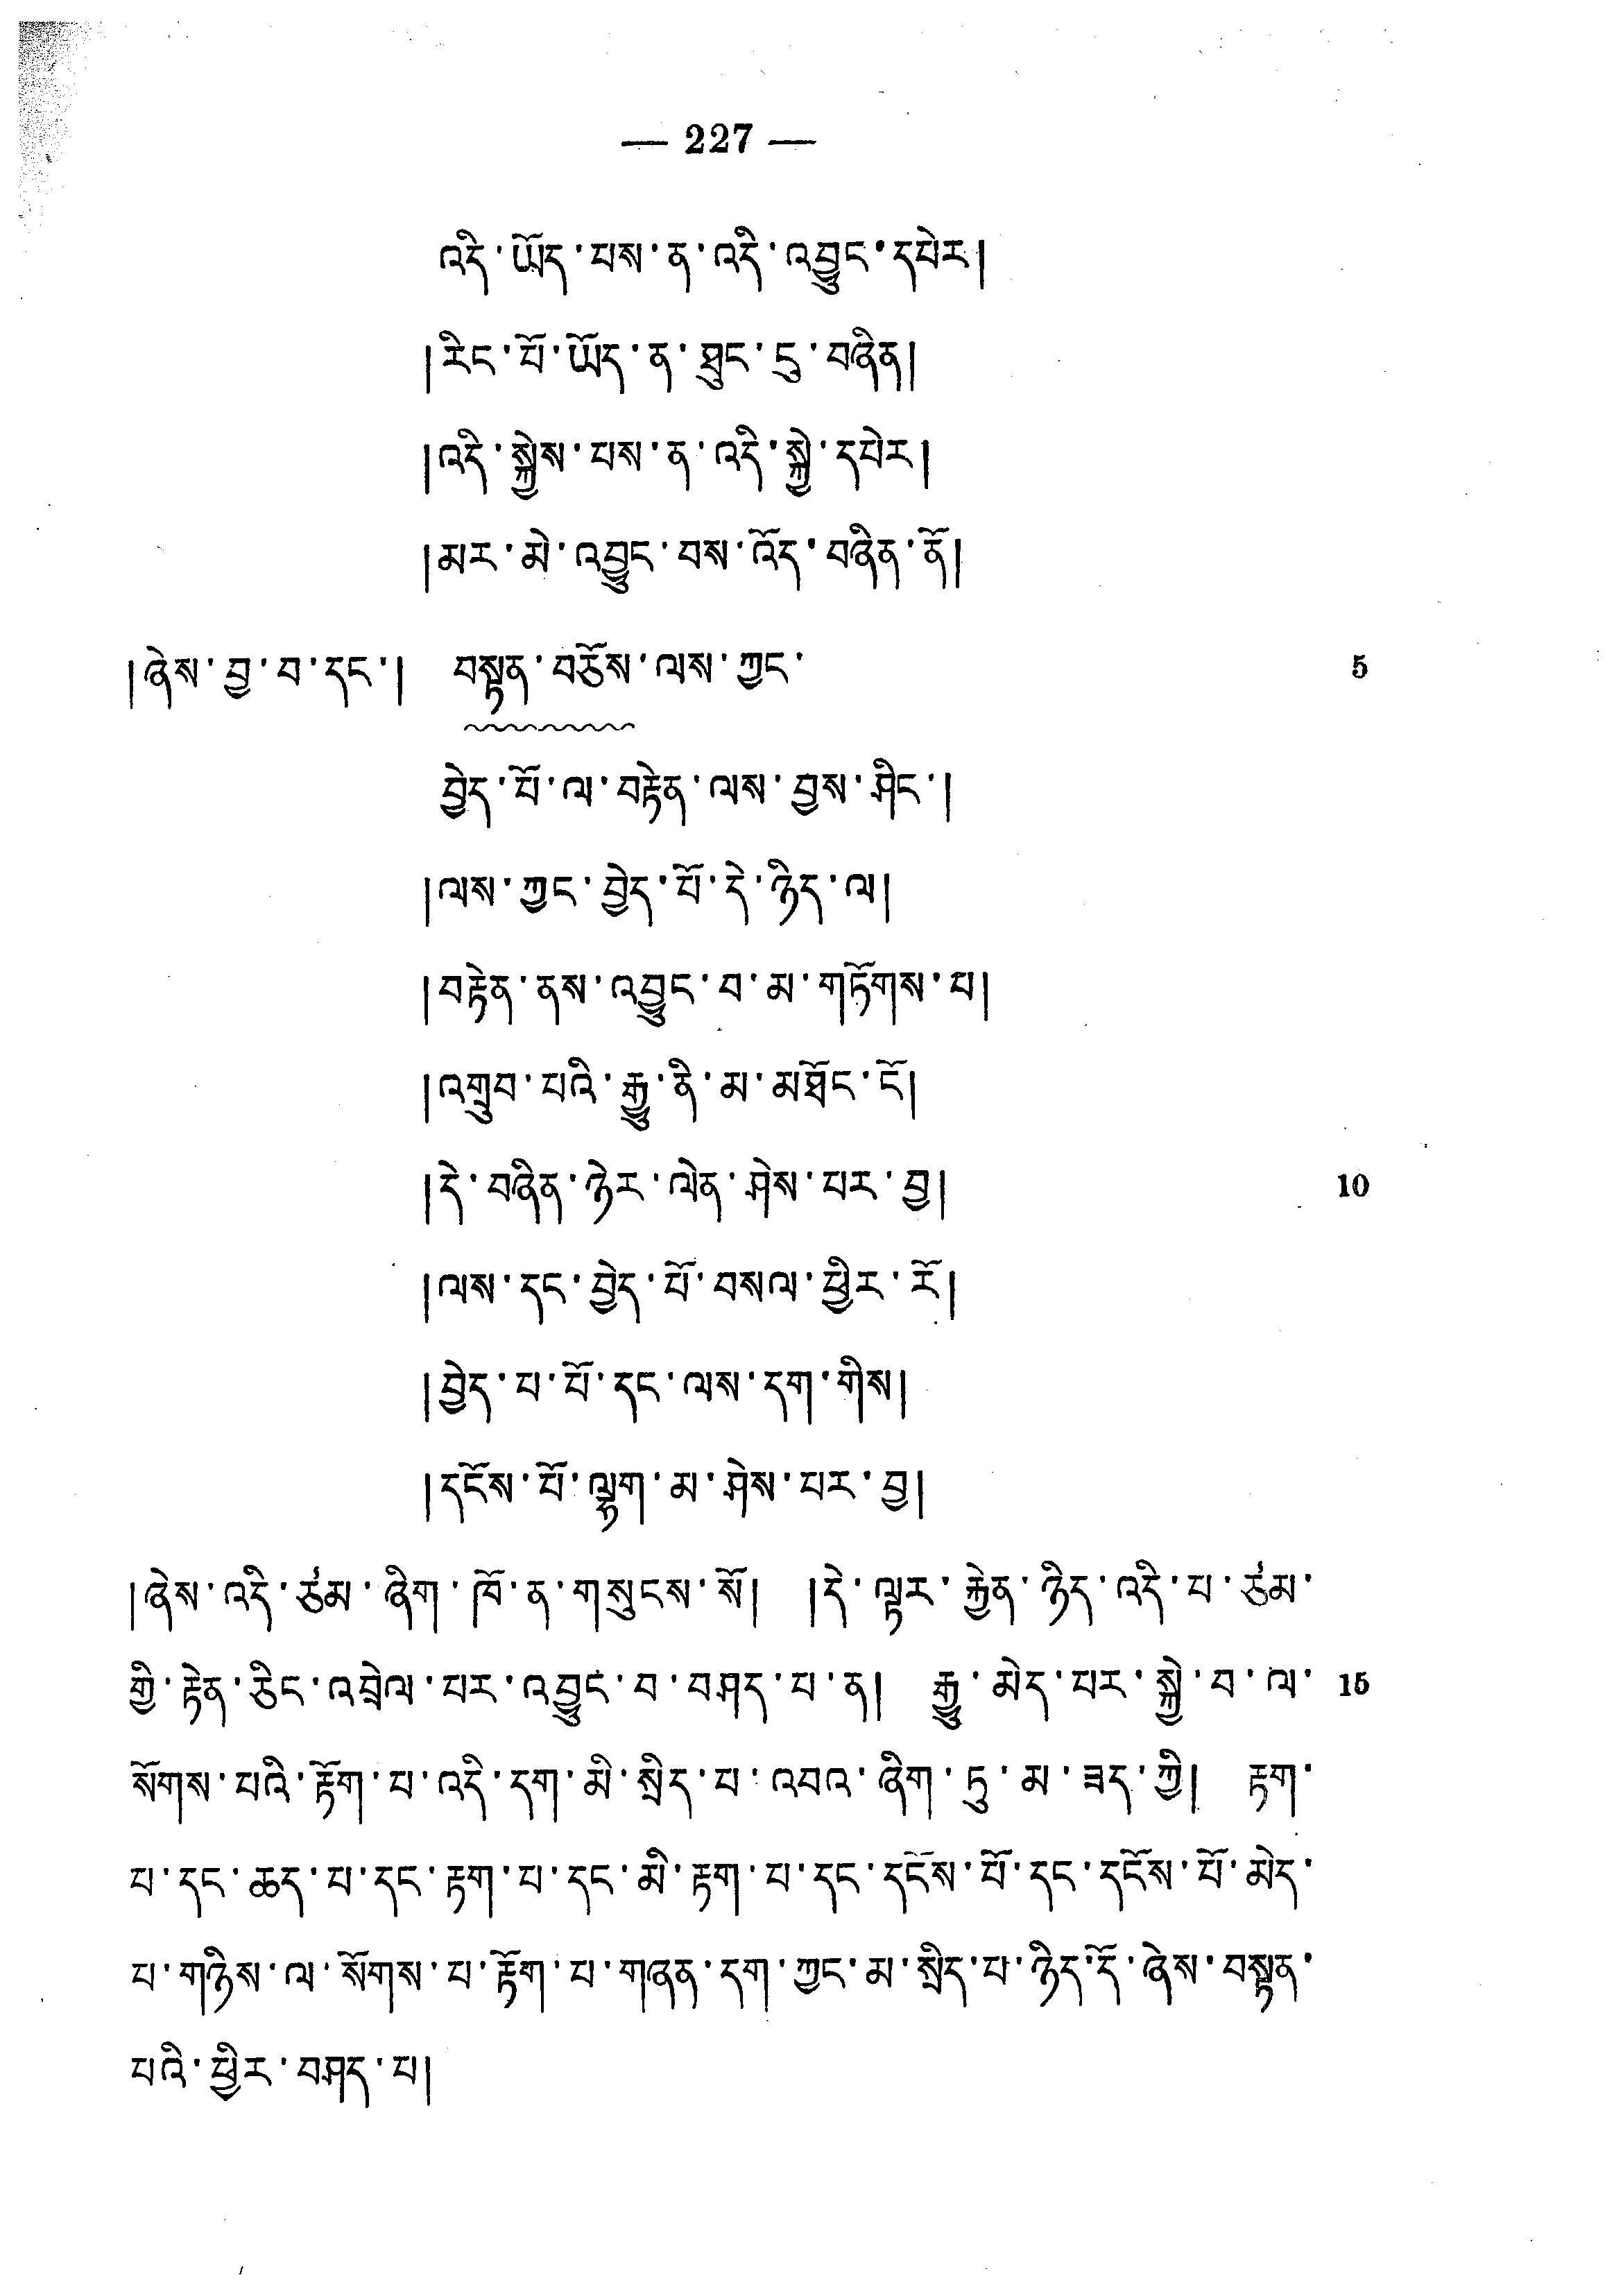 — 227 —
འདི་ཡོད་པས་ན་འདི་འབྱུང་དཔེར།
།རིང་པོ་ཡོད་ན་ཐུང་དུ་བཞིན།
།འདི་སྐྱེས་པས་ན་འདི་སྐྱེ་དཔེར།
།མར་མེ་འབྱུང་བས་འོད་བཞིན་ནོ།
།ཞེས་བྱ་བ་དང་། བསྟན་བཅོས་ལས་ཀྱང་ 5
བྱེད་པོ་ལ་བརྟེན་ལས་བྱས་ཤིང་།
།ལས་ཀྱང་བྱེད་པོ་དེ་ཉིད་ལ།
།བརྟེན་ནས་འབྱུང་བ་མ་གཏོགས་པ།
།འགྲུབ་པའི་རྒྱུ་ནི་མ་མཐོང་ངོ།
།དེ་བཞིན་ཉེར་ལེན་ཤེས་པར་བྱ། 10
།ལས་དང་བྱེད་པོ་བསལ་ཕྱིར་རོ།
།བྱེད་པ་པོ་དང་ལས་དག་གིས།
།དངོས་པོ་ལྷག་མ་ཤེས་པར་བྱ།
།ཞེས་འདི་ཙམ་ཞིག་ཁོ་ན་གསུངས་སོ། །དེ་ལྟར་རྐྱེན་ཉིད་འདི་པ་ཙམ་
གྱི་རྟེན་ཅིང་འབྲེལ་པར་འབྱུང་བ་བཤད་པ་ན། རྒྱུ་མེད་པར་སྐྱེ་བ་ལ་ 15
སོགས་པའི་རྟོག་པ་འདི་དག་མི་སྲིད་པ་འབའ་ཞིག་ཏུ་མ་ཟད་ཀྱི། རྟག་
པ་དང་ཆད་པ་དང་རྟག་པ་དང་མི་རྟག་པ་དང་དངོས་པོ་དང་དངོས་པོ་མེད་
པ་གཉིས་ལ་སོགས་པ་རྟོག་པ་གཞན་དག་ཀྱང་མ་སྲིད་པ་ཉིད་དོ་ཞེས་བསྟན་
པའི་ཕྱིར་བཤད་པ།